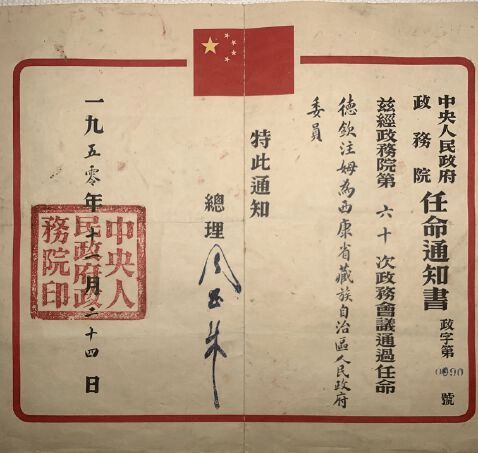 中央人民政府
政務院
任命通知書
政字第0090號
茲經政務院第六十次政務會議通過任命
德欽注姆為西康省藏族自治區人民政府
委員
特此通知
總理 周恩來
一九五零年十一月二十四日
中央人民政府政務院印